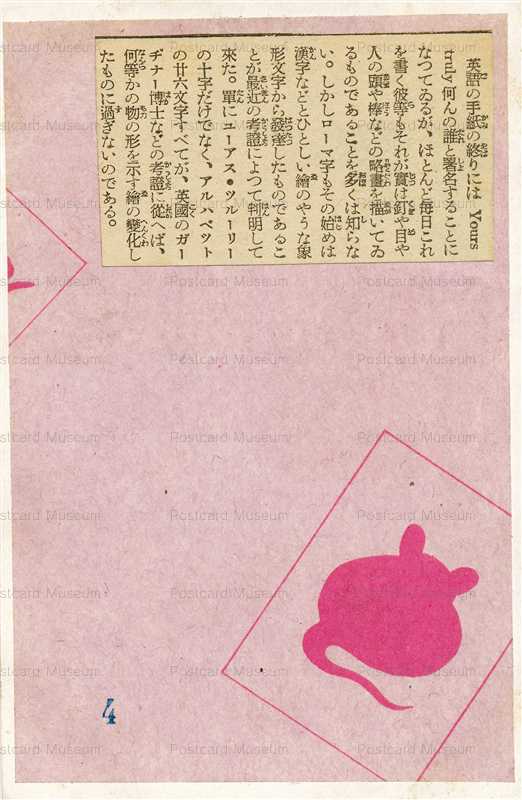 英語の手紙の終りには Yours
truly 何んの誰と署名することに
なつてゐるが、ほとんど毎日これ
を書く彼等もそれが實は釘や目や
人の頭や棒などの略畫を描いてゐ
るものであることを多くは知らな
い。しかしローマ字もその始めは
漢字などとひとしい繪のやうな象
形文字から發達したものであるこ
とが最近の考證によつて判明して
來た。單にユーアス・ツルーリー
の十字だけでなく、アルハベット
の廿六文字すべてが、英國のガー
ヂナー博士などの考證に從へば、
何等かの物の形を示す繪の變化し
たものに過ぎないのである。
4
Postcard Museum